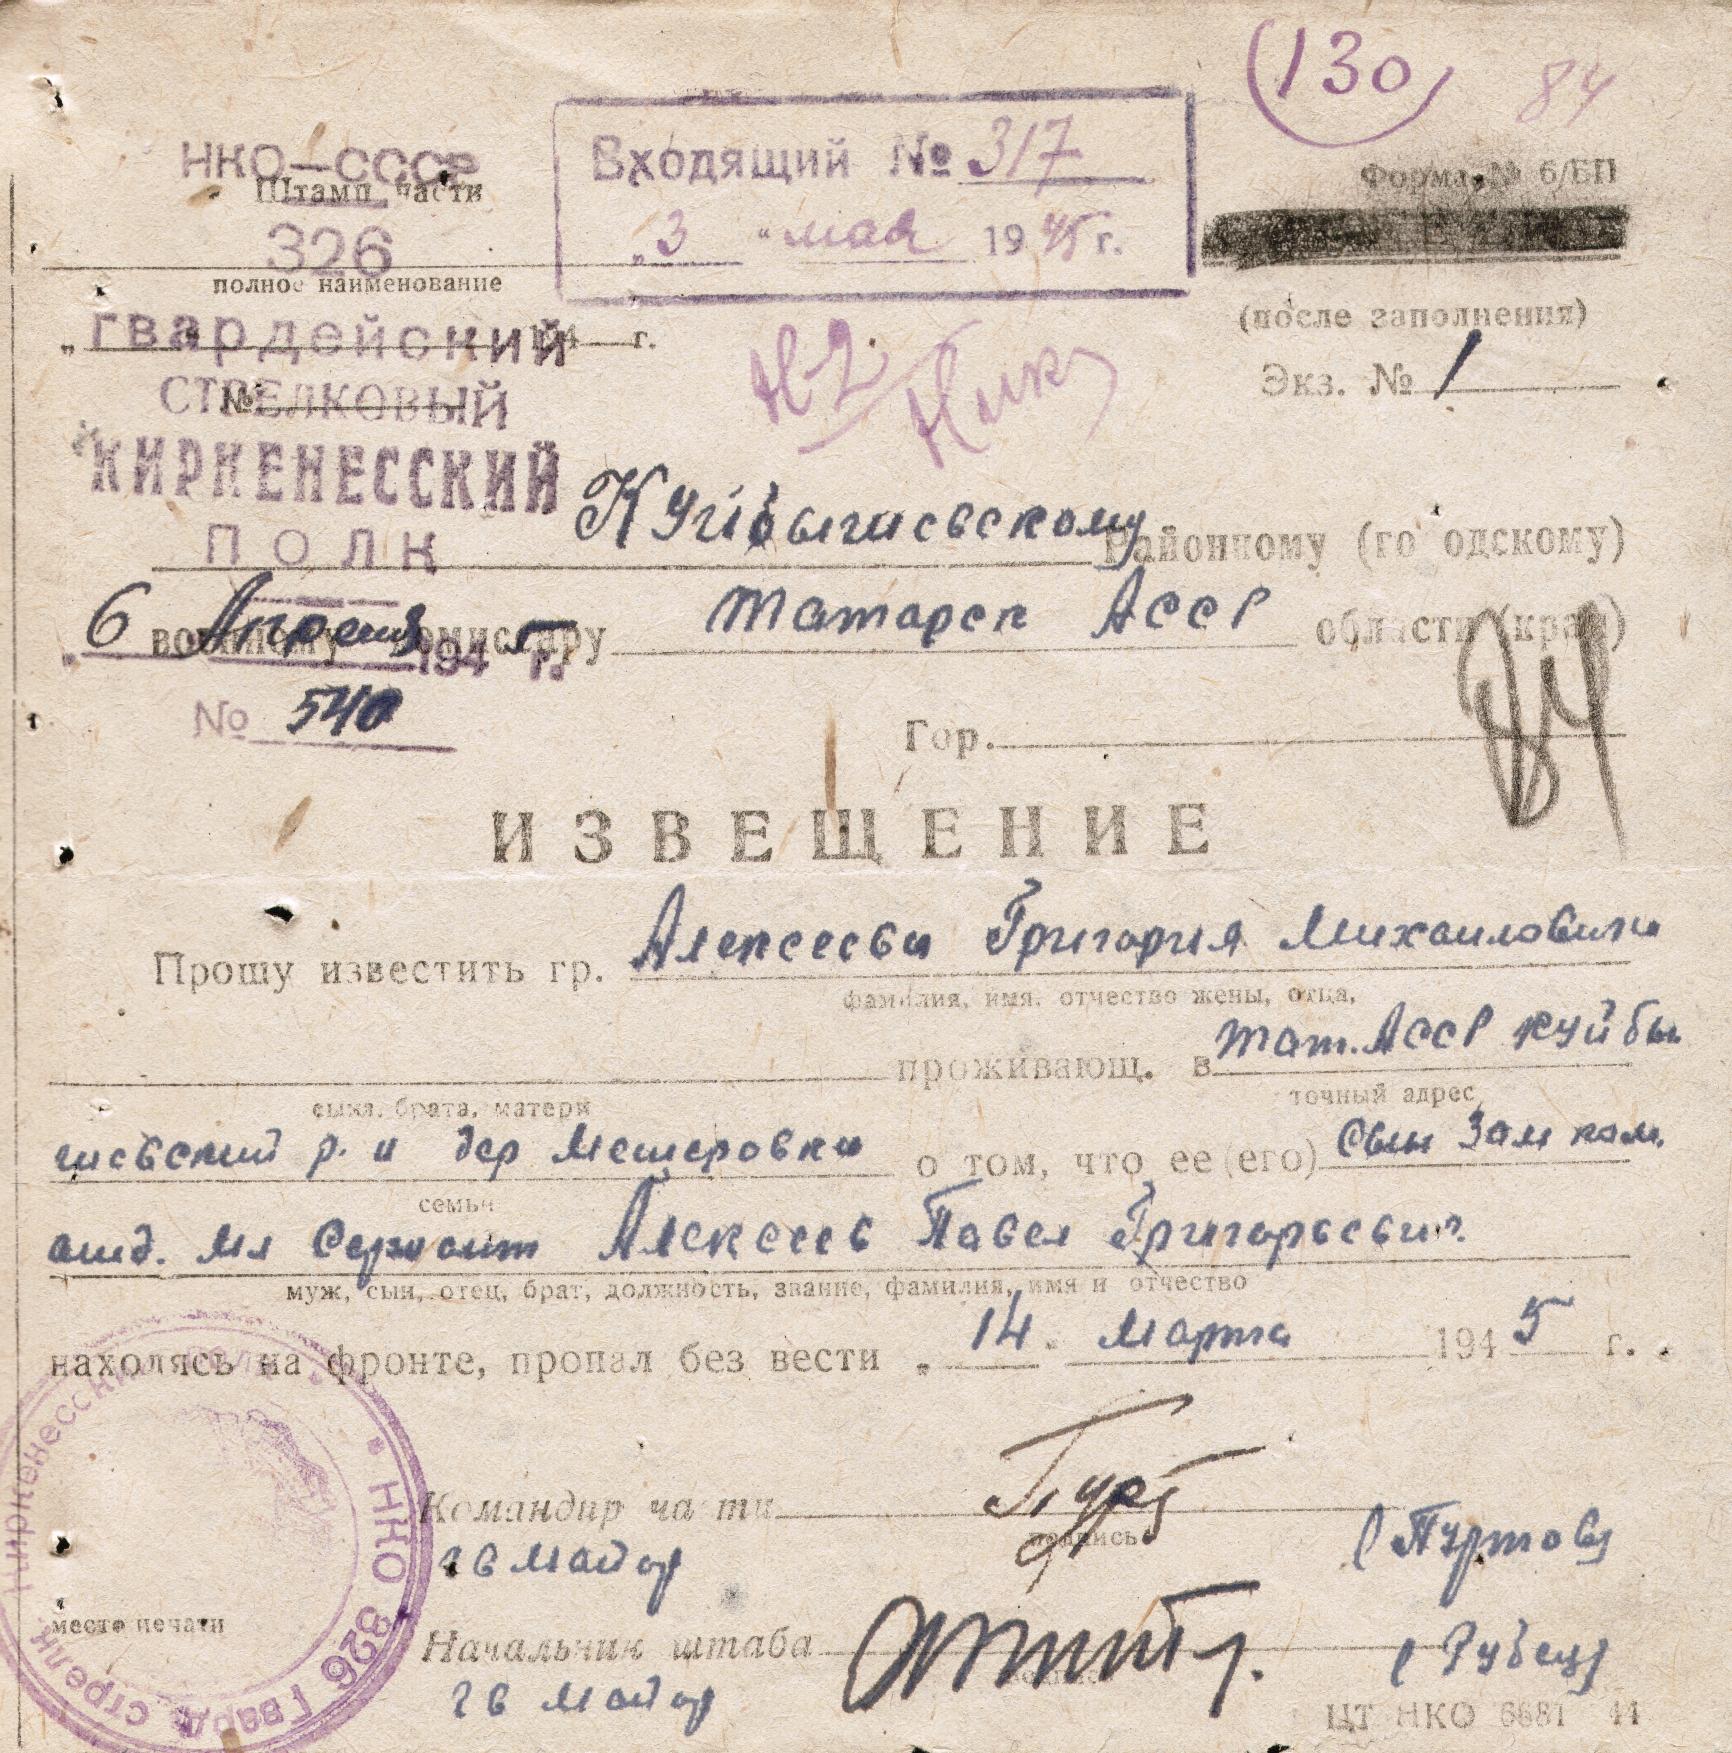 (130) 84
НКО—СССР
Штамп части
326
полное наименование
Входящий № 317
„3" мая 1945 г.
Форма № 6/БП
(после заполнения)
Экз. № 1
гвардейский
194 г.
СТРЕЛКОВЫЙ
№
КИРКЕНЕССКИЙ
ПОЛК
Куйбышевскому Районному (городскому)
военному комиссару Татарск АССР области (края)
„6 Апреля 1945 г.
84
№ 540
Гор.
ИЗВЕЩЕНИЕ
Прошу известить гр. Алексеева Григория Михаиловича
фамилия, имя, отчество жены, отца,
проживающ. в Тат. АССР Куйбы
сына, брата, матери
точный адрес
шевский р.н дер Мещеровка о том, что ее (его) сын Зам ком.
семьи
отд. мл Сержант Алексеев Павел Григорьевич.
муж, сын, отец, брат, должность, звание, фамилия, имя и отчество
находясь на фронте, пропал без вести „14" марта 1945 г.
Командир части
подпись
(Пуртов)
гв майор
место печати
Начальник штаба
(Рубец)
гв майор
НКО 326 Гвард. стрелк. Киркенесский полк
ЦТ НКО 6681 44